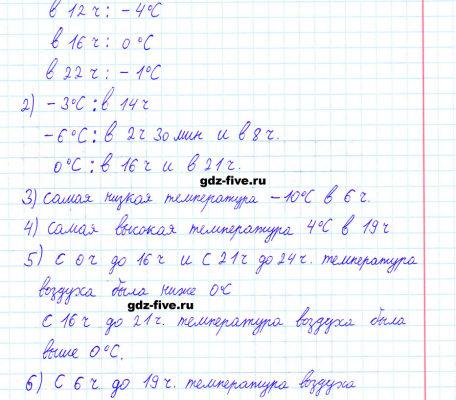 в 12 ч: -4°C
в 16 ч: 0°C
в 22 ч: -1°C
2) -3°C: в 14 ч
-6°C: в 2 ч 30 мин и в 8 ч.
0°C: в 16 ч и в 21 ч.
gdz-five.ru
3) Самая низкая температура -10°C в 6 ч.
4) Самая высокая температура 4°C в 19 ч
5) С 0 ч до 16 ч и с 21 ч до 24 ч. температура
воздуха была ниже 0°C
gdz-five.ru
С 16 ч до 21 ч. температура воздуха была
выше 0°C.
6) С 6 ч до 19 ч. температура воздуха